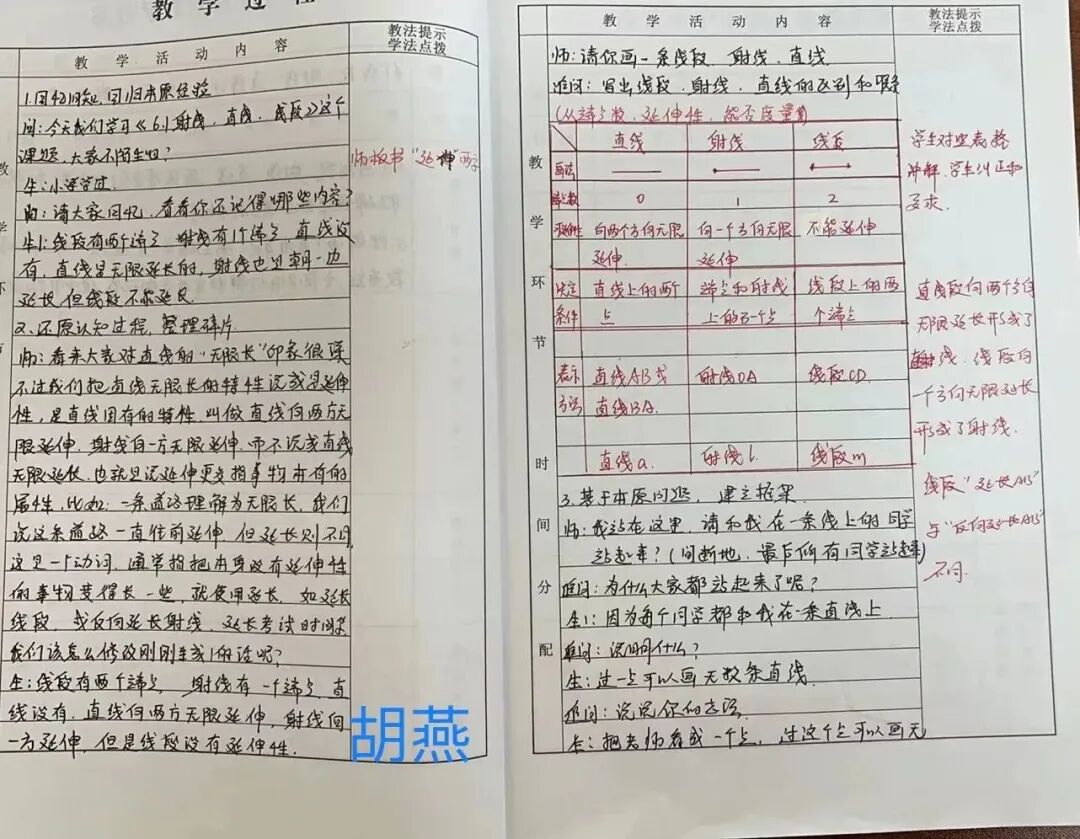 教学过程
教学活动内容
教法提示
学法点拨
1.回忆旧知,回归本原经验
问:今天我们学习《6.1射线、直线、线段》这个
课题,大家不陌生吧?
生:小学学过.
师:请大家回忆,看看你还记得哪些内容?
生1:线段有两个端点,射线有1个端点,直线没
有,直线是无限延长的,射线也是朝一边
延长,但线段不能延长
2、还原认知过程,整理碎片.
师:看来大家对直线的“无限长”印象很深
不过我们把直线无限长的特性说成是延伸
性,是直线固有的特性.叫做直线向两方无
限延伸.射线向一方无限延伸.而不说成直线
无限延长.也就是说延伸更多指事物本有的
属性,比如:一条道路理解为无限长,我们
说这条道路一直往前延伸,但延长则不同
这是一个动词,通常指把本身没有延伸性
的事物变得长一些,就使用延长,如延长
线段,或反向延长射线、延长考试时间等
我们该怎么修改刚刚生1的话呢?
生:线段有两个端点,射线有一个端点,直
线没有,直线向两方无限延伸,射线向
一方延伸,但是线段没有延伸性.
师板书“延伸”两字
胡燕
教学活动内容
教法提示
学法点拨
教学环节时间分配
师:请你画一条线段、射线、直线
追问:写出线段、射线、直线的区别和联系
(从端点数、延伸性、能否度量)
直线 射线 线段
画法
端点数 0 1 2
延伸性 向两个方向无限 向一个方向无限 不能延伸
延伸. 延伸
决定 直线上的两个 端点和射线 线段上的两
条件 点 上的另一个点 个端点
表示 直线AB或 射线OA 线段CD.
方法 直线BA.
直线a. 射线l. 线段m
学生对照表格
讲解,学生纠正和
要求.
直线段向两个方向
无限延长形成了
直线.线段向
一个方向无限延长
形成了射线.
线段“延长AB”
与“反向延长AB”
不同.
3.基于本原问题,建立框架
师:我站在这里,请和我在一条线上的同学
站起来?(间断地,最后所有同学站起来)
追问:为什么大家都站起来了呢?
生1:因为每个同学都和我在一条直线上
追问:说明什么?
生:过一点可以画无数条直线.
追问:说说你的方法
生:把老师看成一个点,过这个点可以画无